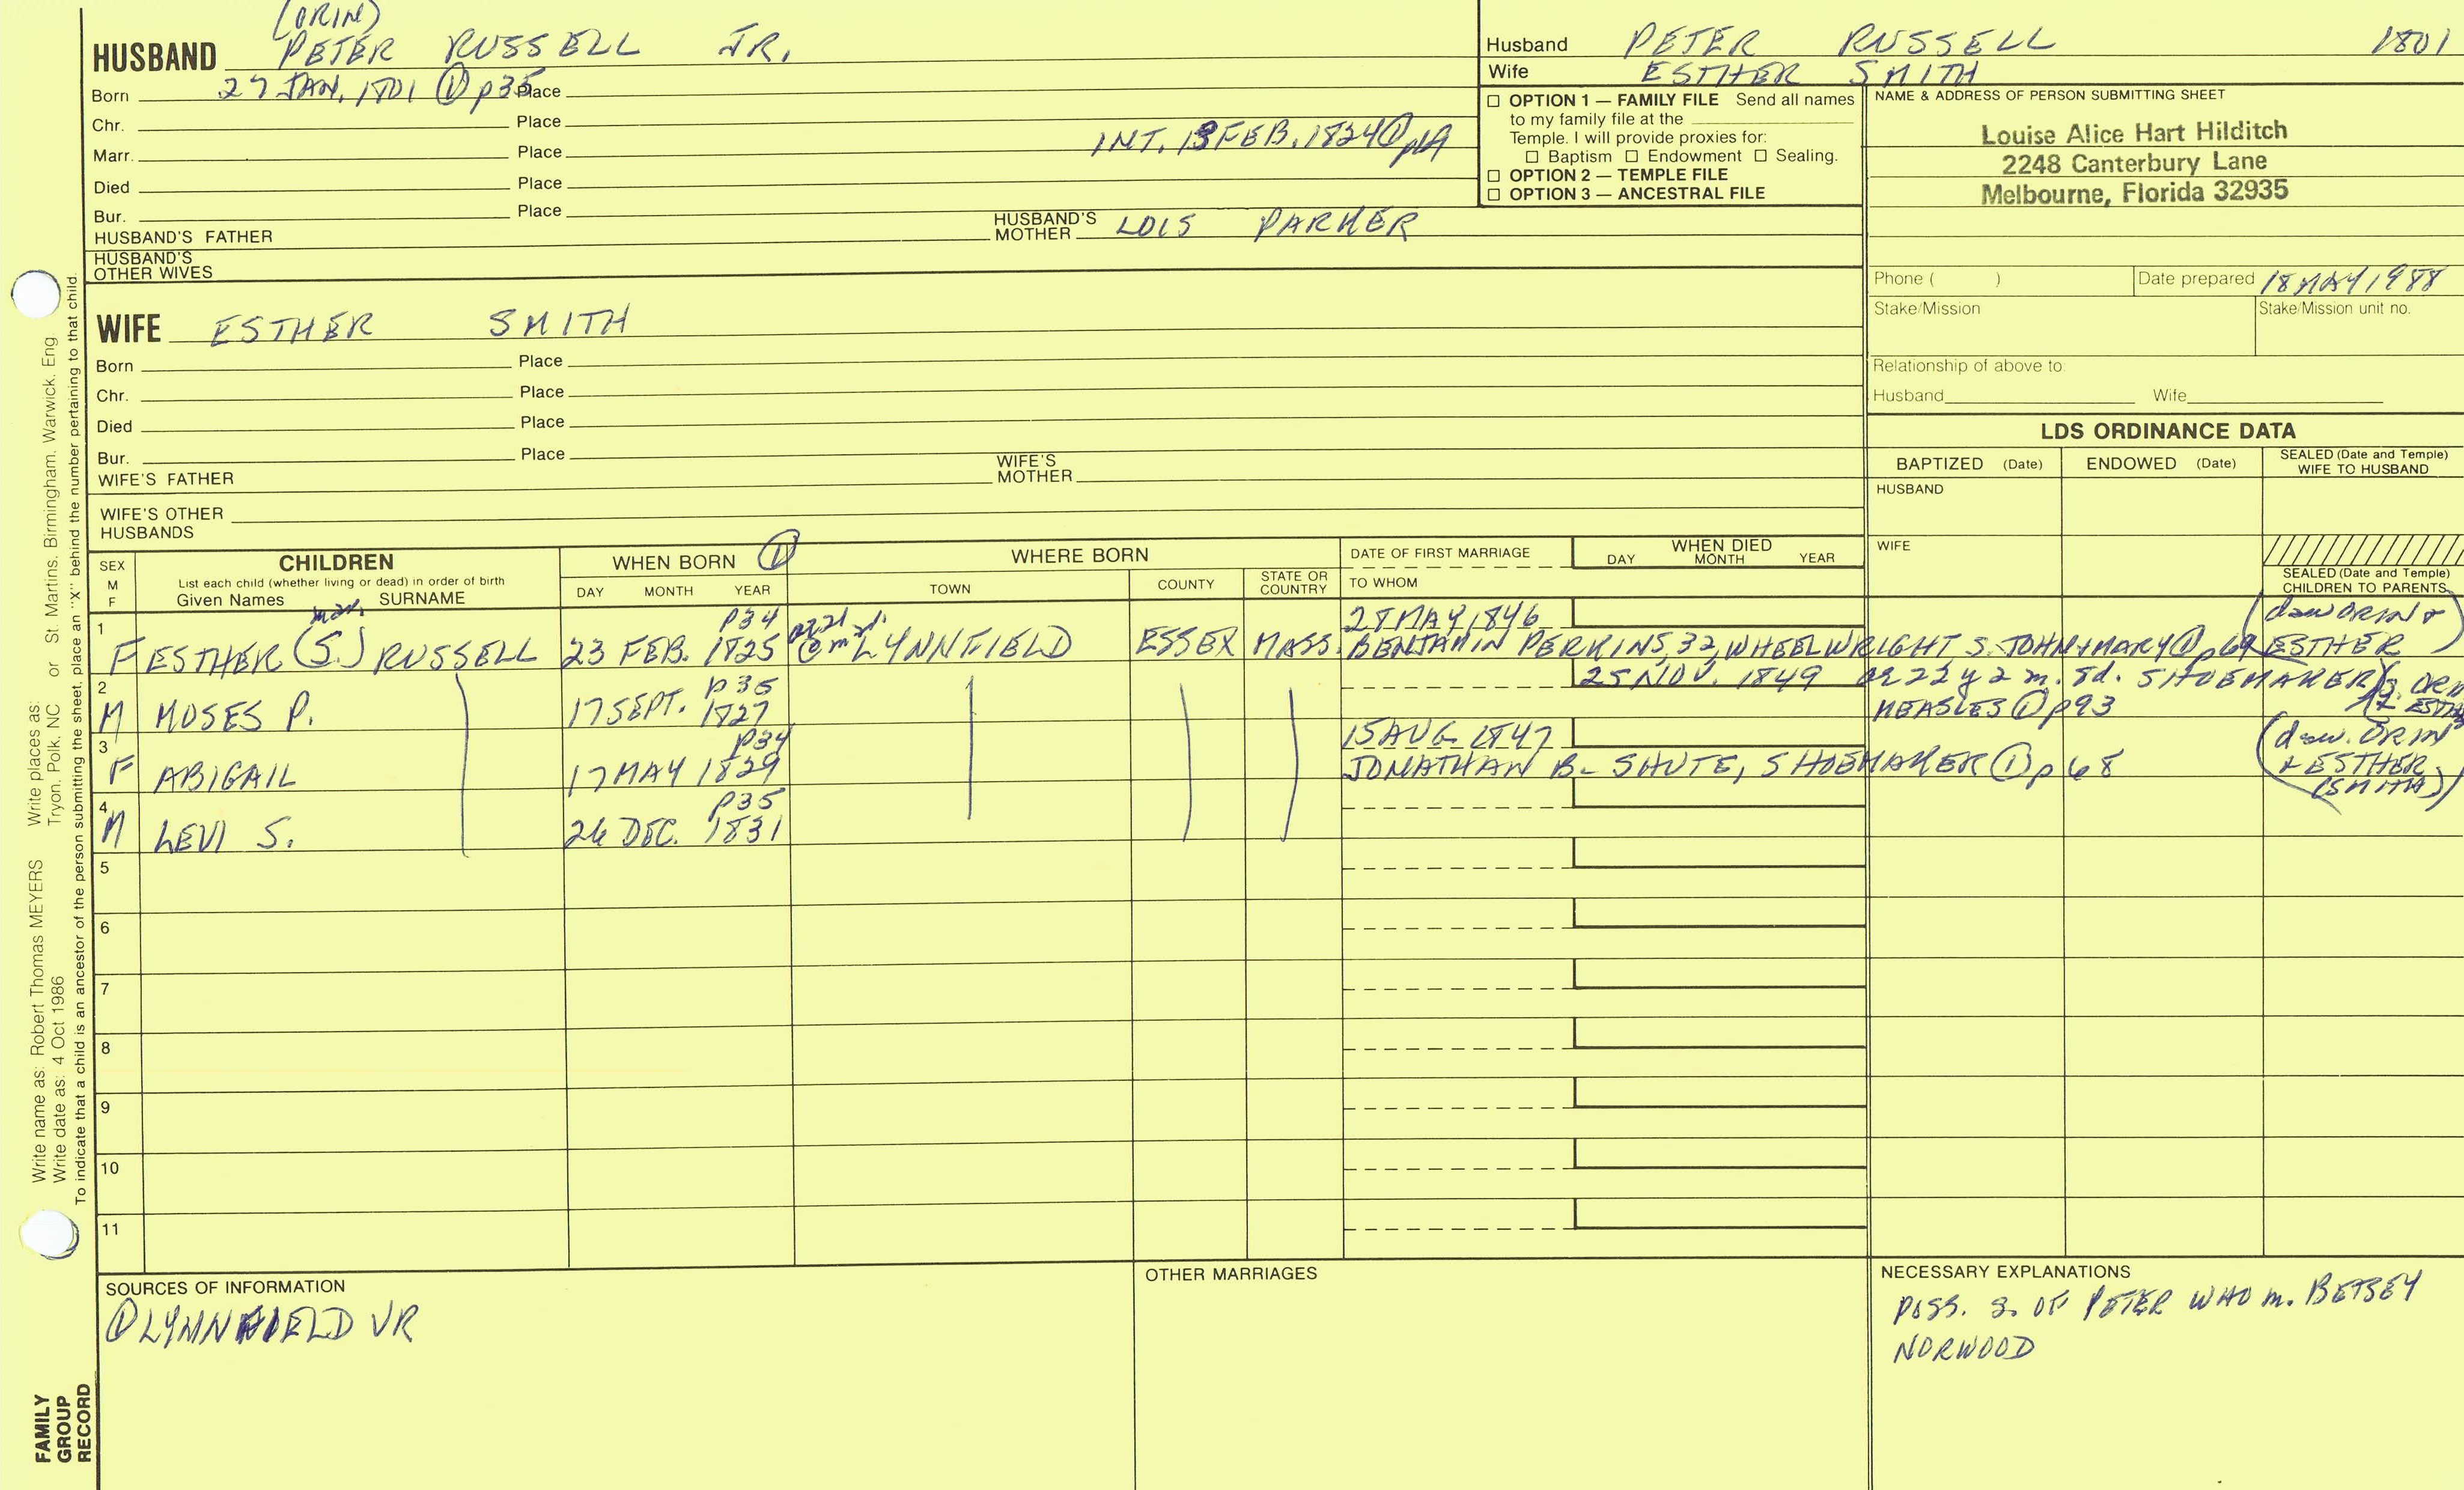 (ORIN)
HUSBAND PETER RUSSELL JR.
Born 27 JAN. 1801 ① p35 Place
Chr. Place
Marr. Place INT. 13 FEB. 1824 ①
Died Place
Bur. Place
HUSBAND'S FATHER HUSBAND'S MOTHER LOIS PARKER
HUSBAND'S OTHER WIVES
WIFE ESTHER SMITH
Born Place
Chr. Place
Died Place
Bur. Place
WIFE'S FATHER WIFE'S MOTHER
WIFE'S OTHER HUSBANDS
Husband PETER RUSSELL 1801
Wife ESTHER SMITH
☐ OPTION 1 — FAMILY FILE Send all names
to my family file at the
Temple. I will provide proxies for:
☐ Baptism ☐ Endowment ☐ Sealing.
☐ OPTION 2 — TEMPLE FILE
☐ OPTION 3 — ANCESTRAL FILE
NAME & ADDRESS OF PERSON SUBMITTING SHEET
Louise Alice Hart Hilditch
2248 Canterbury Lane
Melbourne, Florida 32935
Phone ( ) Date prepared 18 MAY 1988
Stake/Mission Stake/Mission unit no.
Relationship of above to:
Husband Wife
LDS ORDINANCE DATA
BAPTIZED (Date) ENDOWED (Date) SEALED (Date and Temple) WIFE TO HUSBAND
HUSBAND
WIFE
SEALED (Date and Temple)
CHILDREN TO PARENTS
SEX M F
CHILDREN
List each child (whether living or dead) in order of birth
Given Names SURNAME
WHEN BORN ①
DAY MONTH YEAR
WHERE BORN
TOWN COUNTY STATE OR COUNTRY
DATE OF FIRST MARRIAGE
TO WHOM
WHEN DIED
DAY MONTH YEAR
1 p34 28 MAY 1846 (daw ORIN +
F ESTHER (S.) RUSSELL 23 FEB. 1825 LYNNFIELD ESSEX MASS. BENJAMIN PERKINS, 32, WHEELWRIGHT S. JOHN + MARY ① p69 ESTHER)
2 p35 25 NOV. 1849 ae 22 y 2 m. 8d. SHOEMAKER
M MOSES P. 17 SEPT. 1827 MEASLES ① p93
3 p34 15 AUG 1847 (daw. ORIN
F ABIGAIL 17 MAY 1829 JONATHAN B. SHUTE, SHOEMAKER ① p68 + ESTHER
(SMITH))
4 p35
M LEVI S. 26 DEC. 1831
5
6
7
8
9
10
11
SOURCES OF INFORMATION
① LYNNFIELD VR
OTHER MARRIAGES
NECESSARY EXPLANATIONS
POSS. S. OF PETER WHO m. BETSEY
NORWOOD
Write name as: Robert Thomas MEYERS Write places as: St Martins, Birmingham, Warwick, Eng
Write date as: 4 Oct 1986 Tryon, Polk, NC or
To indicate that a child is an ancestor of the person submitting the sheet, place an "X" behind the number pertaining to that child.
FAMILY
GROUP
RECORD